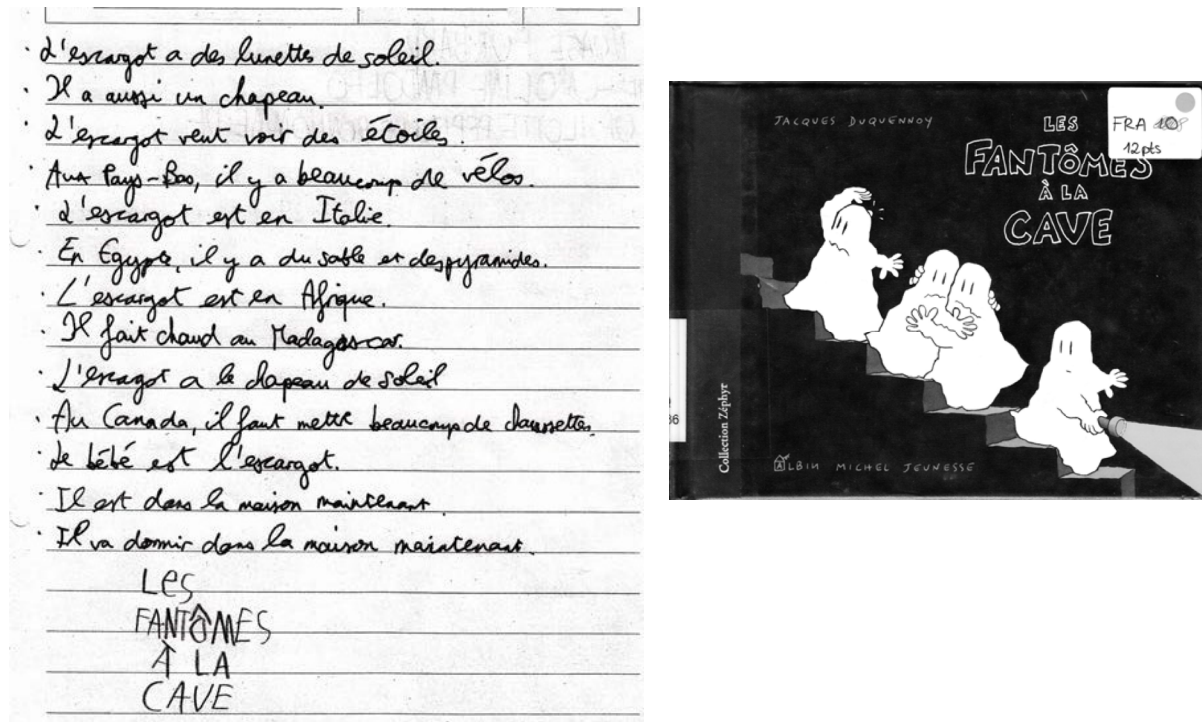 · L'escargot a des lunettes de soleil.
· Il a aussi un chapeau.
· L'escargot veut voir des étoiles.
· Aux Pays-Bas, il y a beaucoup de vélos.
· L'escargot est en Italie.
· En Egypte, il y a du sable et des pyramides.
· L'escargot est en Afrique.
· Il fait chaud au Madagascar.
· L'escagot a le chapeau de soleil
· Au Canada, il faut mettre beaucoup de chaussettes.
· Le bébé est l'escargot.
· Il est dans la maison maintenant.
· Il va dormir dans la maison maintenant.
Les
FANTÔMES
À LA
CAVE
JACQUES DUQUENNOY
LES
FANTÔMES
À LA
CAVE
FRA 10
12pts
Collection Zéphyr
ALBIN MICHEL JEUNESSE